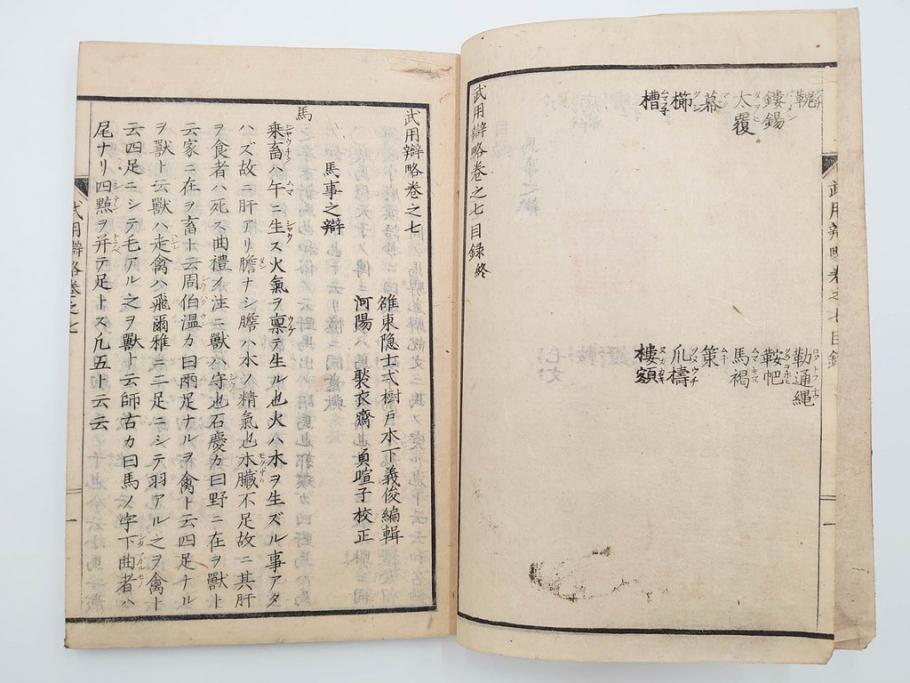 勒通縄
鏤鍚
鞍帊
太覆
馬褐
幕
策
櫛
爪擣
槽
樓額
武用辯略巻之七目録終
武用辯略巻之七目録
武用辯略巻之七
馬事之辯
雒東隠士弌樹戸木下義俊編輯
河陽 褧衣齋貞暄子校正
馬
乗畜ハ午ニ生ス火氣ヲ禀テ生ル也火ハ木ヲ生ズル事アタ
ハズ故ニ肝アリ膽ナシ膽ハ木ノ精氣也木臓不足故ニ其肝
ヲ食者ハ死ス曲禮ノ注ニ獸ハ守也石慶カ曰野ニ在ヲ獸ト
云家ニ在ヲ畜ト云周伯温カ曰兩足ナルヲ禽ト云四足ナル
ヲ獸ト云獸ハ走禽ハ飛爾雅ニ二足ニシテ羽アル之ヲ禽ト
云四足ニシテ毛アル之ヲ獸ト云師古カ曰馬ノ字下曲者ハ
尾ナリ四點ヲ并テ足トス凢五十云云
武用辯略巻之七
一